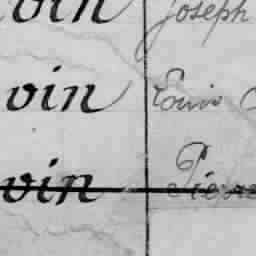 vin Joseph
vin Louis
vin Pierre